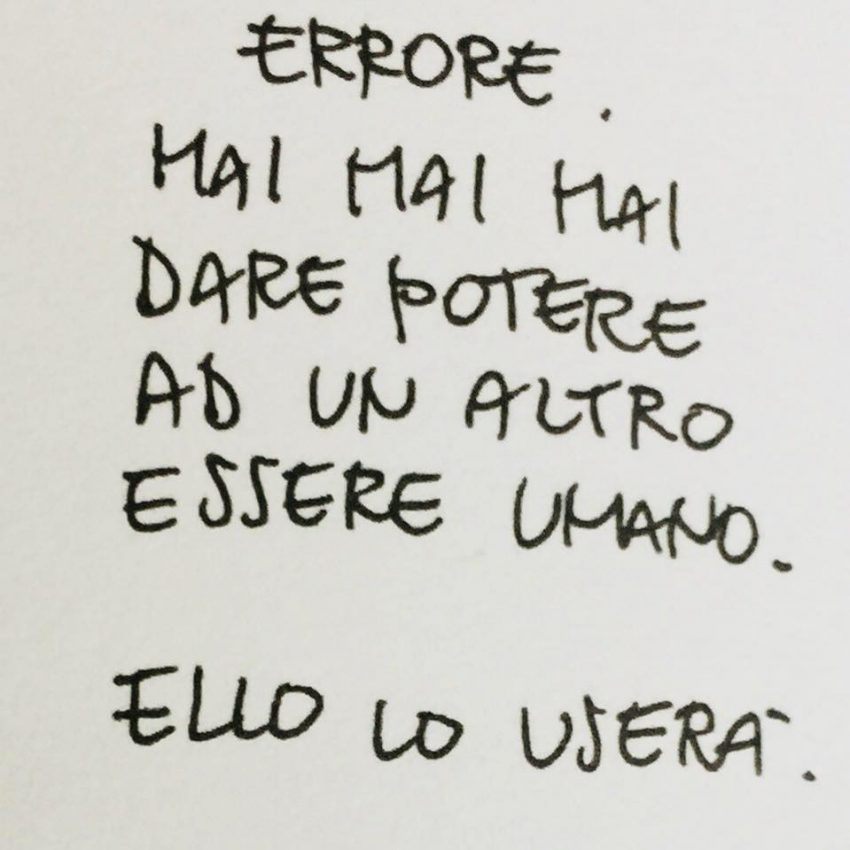 ERRORE.
MAI MAI MAI
DARE POTERE
AD UN ALTRO
ESSERE UMANO.
ELLO LO USERÀ.